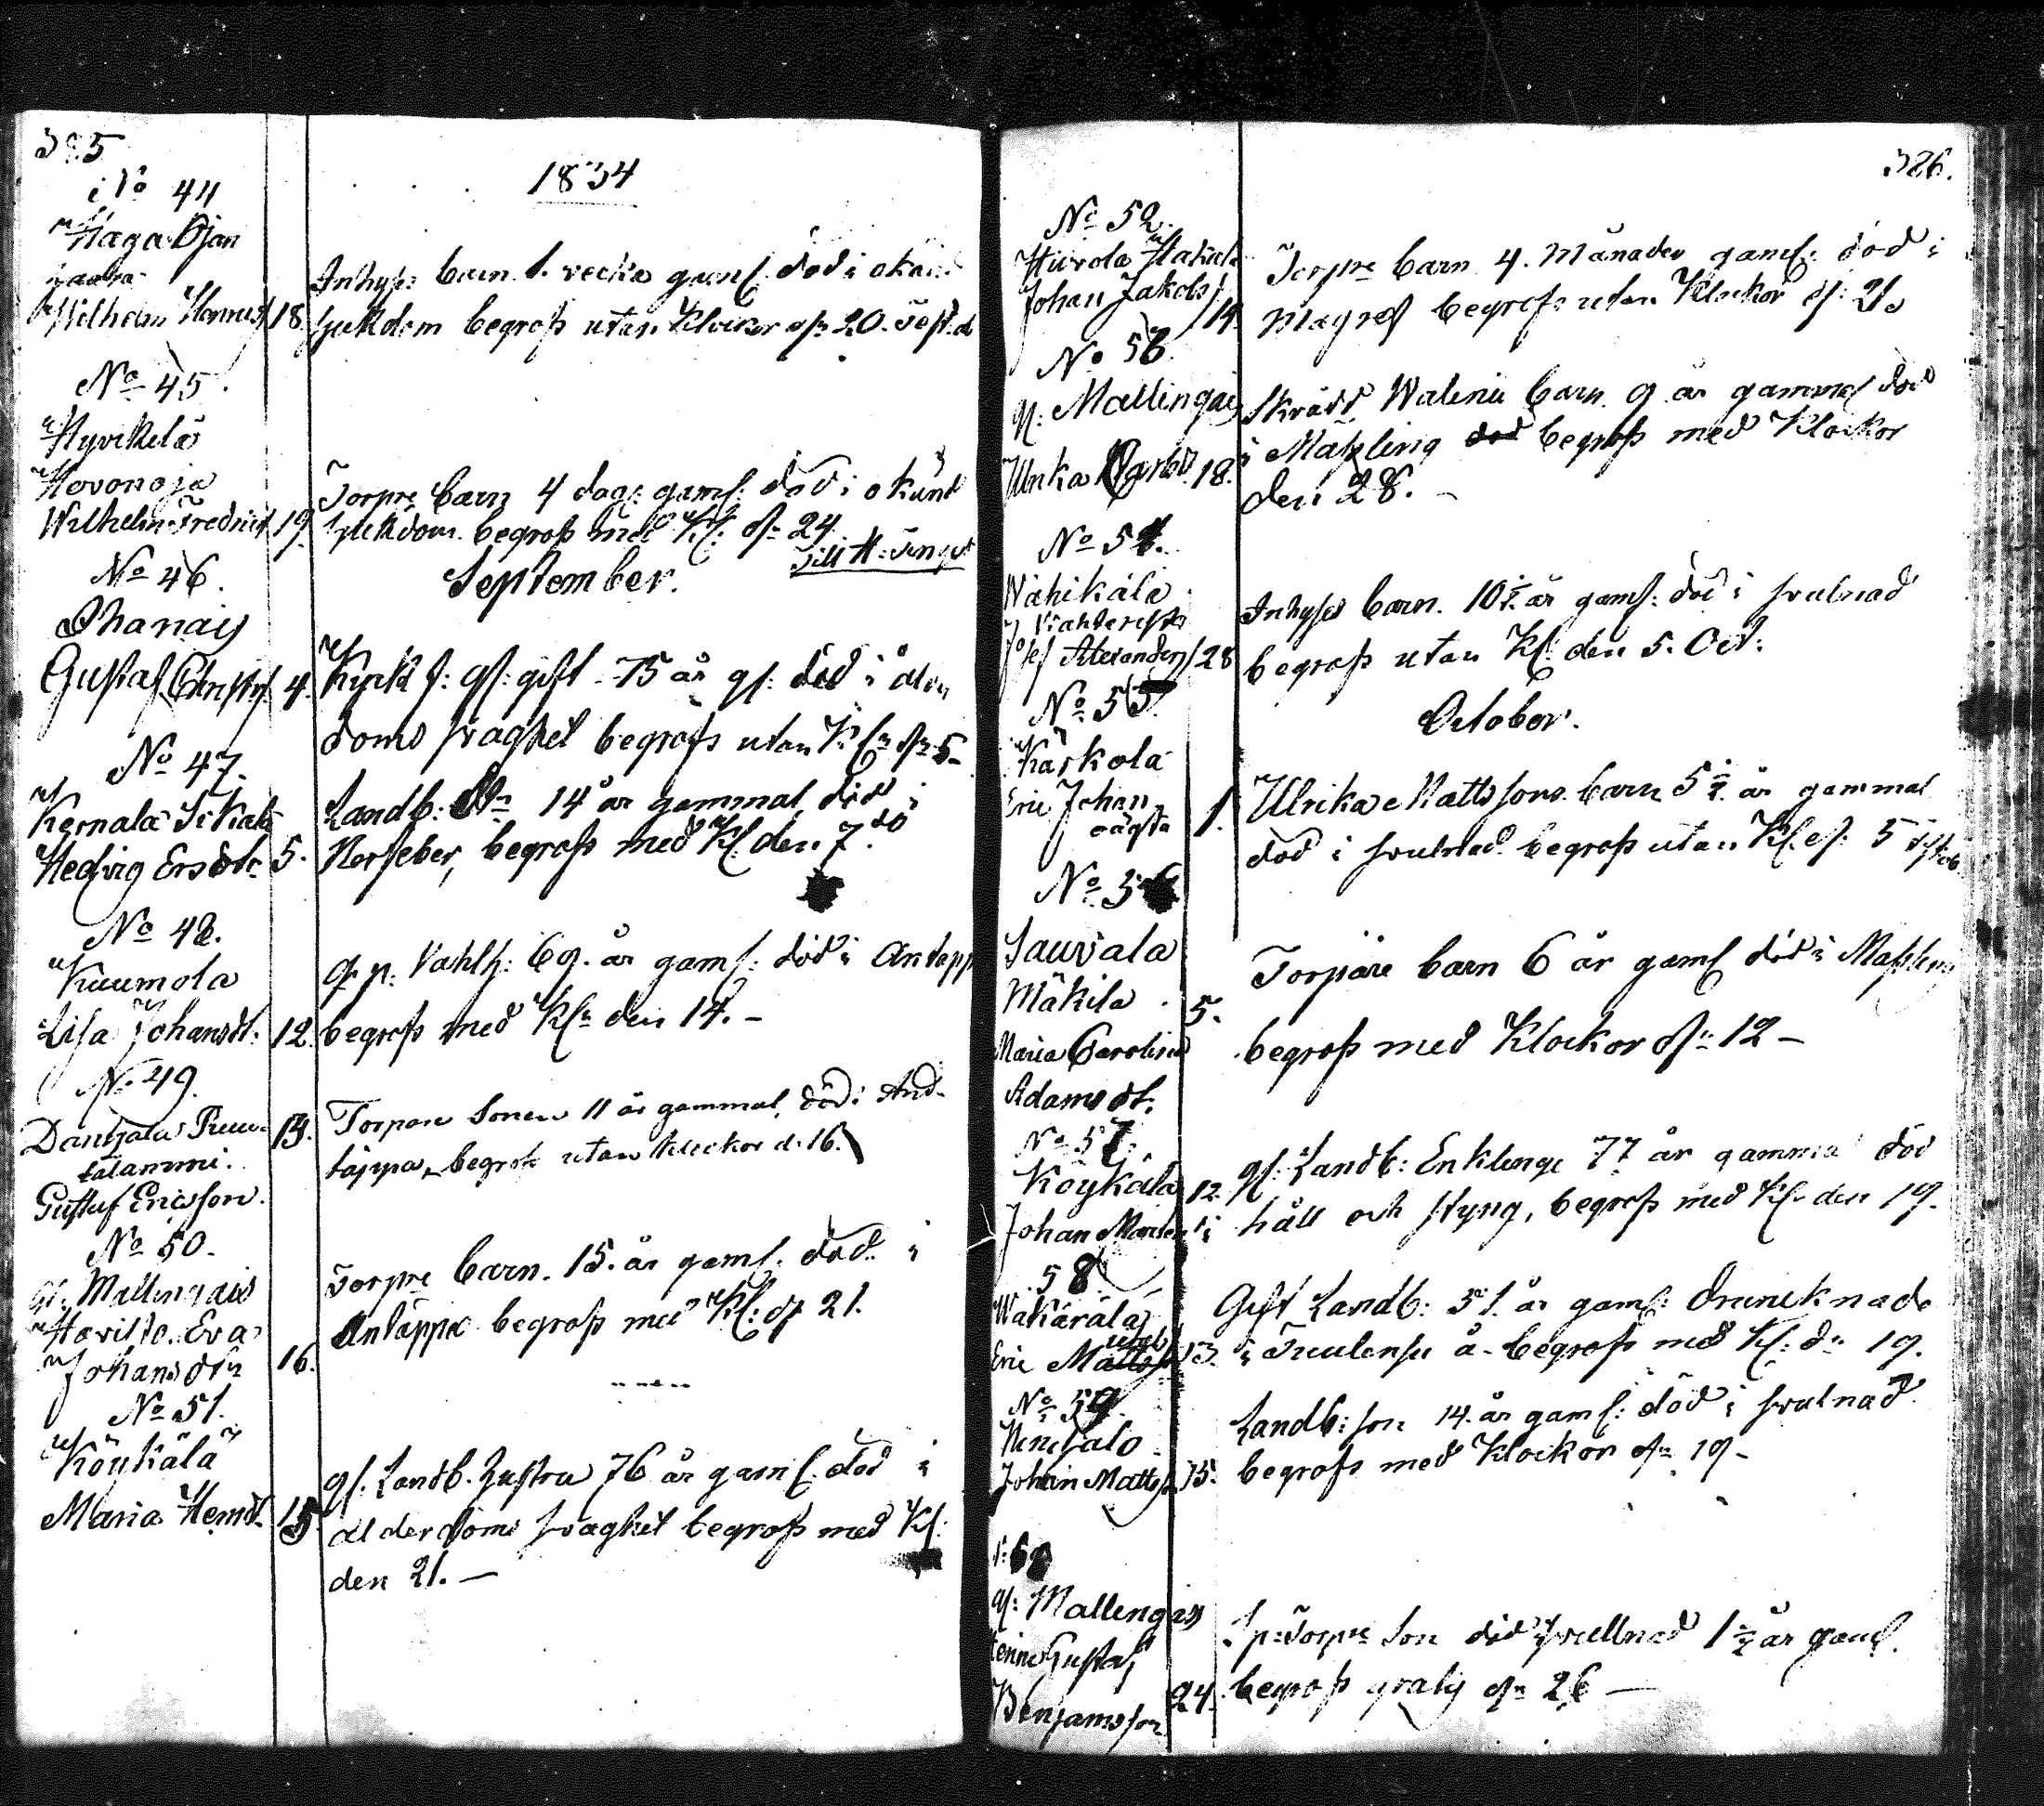 325
1834
No 44
Haga Ojan
Wilhelm
18
Inhys: barn 1. vecka gaml. död i okänd
sjukdom begrofs utan Klockor d: 20. Sept.
No 45.
Hyvikelä
Hovonoja
Wilhelm Fredrik
19.
Torpre barn 4 dag: gaml: död i okänd
sjukdom begrofs med Kl: d: 24
September.
No 46.
Ohanais
Gustaf
4.
Kyrk f: gl: gift 75 år gl: död i ålder
doms svaghet begrofs utan Kl: d: 5
No 47.
Kernala
Hedvig Ersdtr
5.
Landb: Dtr 14 år gammal död i
Nerfeber, begrofs med Kl: den 7de
No 48.
Kuumola
Lisa Johansdt:
12.
69. år gaml: död i Andtäpp
begrofs med Kl: den 14. –
No 49.
Dantjala
talammi.
Gustaf Ericsson.
Torpare Sonen 11 år gammal, död i And-
täppa, begrofs utan Klockor d. 16.
No 50.
Gl: Mallingais
Havisto. Eva
Johansdtr
16.
Torpre barn. 15. år gaml. död i
Antäppa begrofs med Kl: d: 21.
No 51.
Köykälä
Maria Hemdt.
15
gl. Landb. Hustru 76 år gaml. död i
alderdoms svaghet begrofs med Kl:
den 21. –
326.
No 52.
Johan Jakobs
19.
Torpre barn 4. Månader gaml: död i
Magref begrofs utan Klockor d: 21
No 53.
gl: Mallingais
Ulrika
18.
Skrädd. Waleni barn 9 år gammal död
i Mäßling död begrofs med Klockor
den 28. –
No 54.
Wähikälä
Josef Alexanders
28
Inhyses barn. 10½ år gaml: död i svulnad
begrofs utan Kl: den 5. Oct:
October.
No 55.
Karkola
Eric Johan
oägta
1.
Ulrika Mattsons barn 5½ år gammal
död i svulnad begrofs utan Kl. d: 5
No 56
Sauvala
Mäkila
Maria Carolina
Adamsdt.
5.
Torpare barn 6 år gaml död i Mäßling
begrofs med Klockor d: 12 –
No 57.
Köykälä
Johan
12
gl: Landb: Enklinge 77 år gammal död
i håll och styng, begrofs med Kl den 19.
58
Wakärälä
Eric Matts
13
Gift Landb: 51. år gaml: drunknade
i Tuulensu å begrofs med Kl: d: 19.
No 59.
Johan Matts
15.
Landb: son 14. år gaml: död i svulnad
begrofs med Klockor d: 19 –
60
gl: Mallengais
Gustaf
Benjamsson
24.
Torpre Son död i svullnad 1½ år gaml.
begrofs gratis d: 26 –